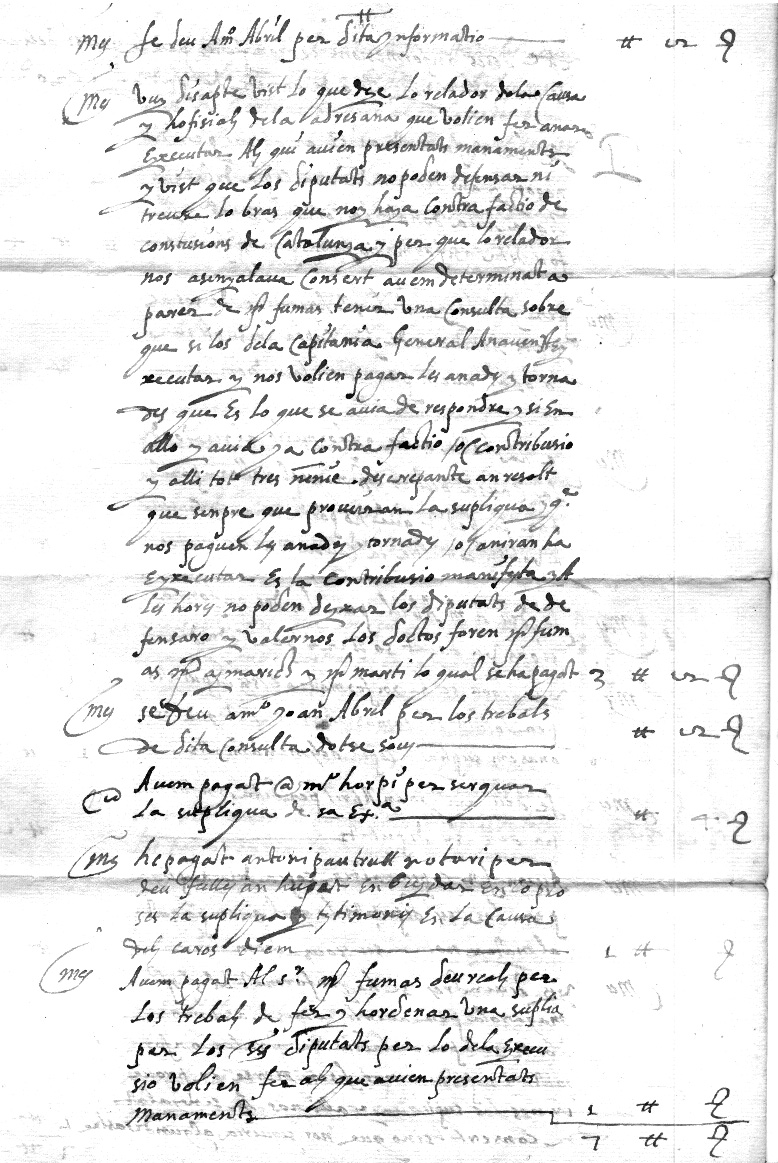 mes se deu A mº Abril per dita ynformatio — ₶ 12 ß
mes vuy disapte vist lo que deye lo relador de la Causa
y hofisials de la adresana que volien fer anar
Executar Als qui avien presentats manaments
y vist que los diputats no poden defensar ni
treure lo bras que noy haja contra factio de
constusions de Catalunya y per que lo relador
nos asinyalava Consert avem determinat a
parer de mr fumas tenir una Consulta sobre
que si los de la Capitania General Anaven A e
xecutar y nos volien pagar les anades y torna
des que Es lo que se avia de respondre y si En
allo y avia ya contra factio /o/ contribusio
y alli tots tres nemine discrepante an resolt
que senpre que proveiran la supliqua y qe
nos paguen les anades y tornades /o/ aniran ha
Exsecutar Es la contribusio manifesta y A
les hores no poden dexar los diputats de de
fensaro y valernos los doctos foren mr fum
as mr aymerich y mr marti lo qual se ha pagat 3 ₶ 12 ß
mes se deu a mº Joan Abril per los trebals
de dita Consulta dotse sous — ₶ 12 ß
Avem pagat a mº horpi per serquar
La supliqua de sa Exª — ₶ 4 ß
mes he pagat antoni pau trull notari per
deu fulls an hupat En buydar En lo pro
ses la supliqua y tstimonis En la Causa
dels caros diem — 1 ₶ ß
mes Avem pagat Al sr mr fumas deu reals per
Los trebals de fer y hordenar una suplia
per Los srs diputats per lo de la Execu
sio volien fer als que avien presentats
manaments — 1 ₶ ß
7 ₶ ß